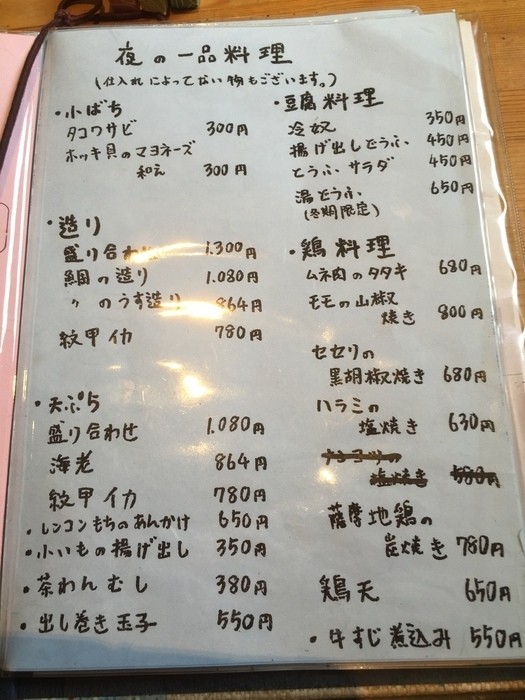 夜の一品料理
(仕入れによってない物もございます。)
・小ばち
タコワサビ 300円
ホッキ貝のマヨネーズ
和え 300円
・造り
盛り合わせ 1.300円
鯛の造り 1.080円
〃 のうす造り 864円
紋甲イカ 780円
・天ぷら
盛り合わせ 1.080円
海老 864円
紋甲イカ 780円
・レンコンもちのあんかけ 650円
・小いもの揚げ出し 350円
・茶わんむし 380円
・出し巻き玉子 550円
・豆腐料理
冷奴 350円
揚げ出しどうふ 450円
とうふサラダ 450円
湯どうふ 650円
(冬期限定)
・鶏料理
ムネ肉のタタキ 680円
モモの山椒
焼き 800円
セセリの
黒胡椒焼き 680円
ハラミの
塩焼き 630円
ナンコツの
塩焼き 580円
薩摩地鶏の
炭焼き 780円
鶏天 650円
・牛すじ煮込み 550円